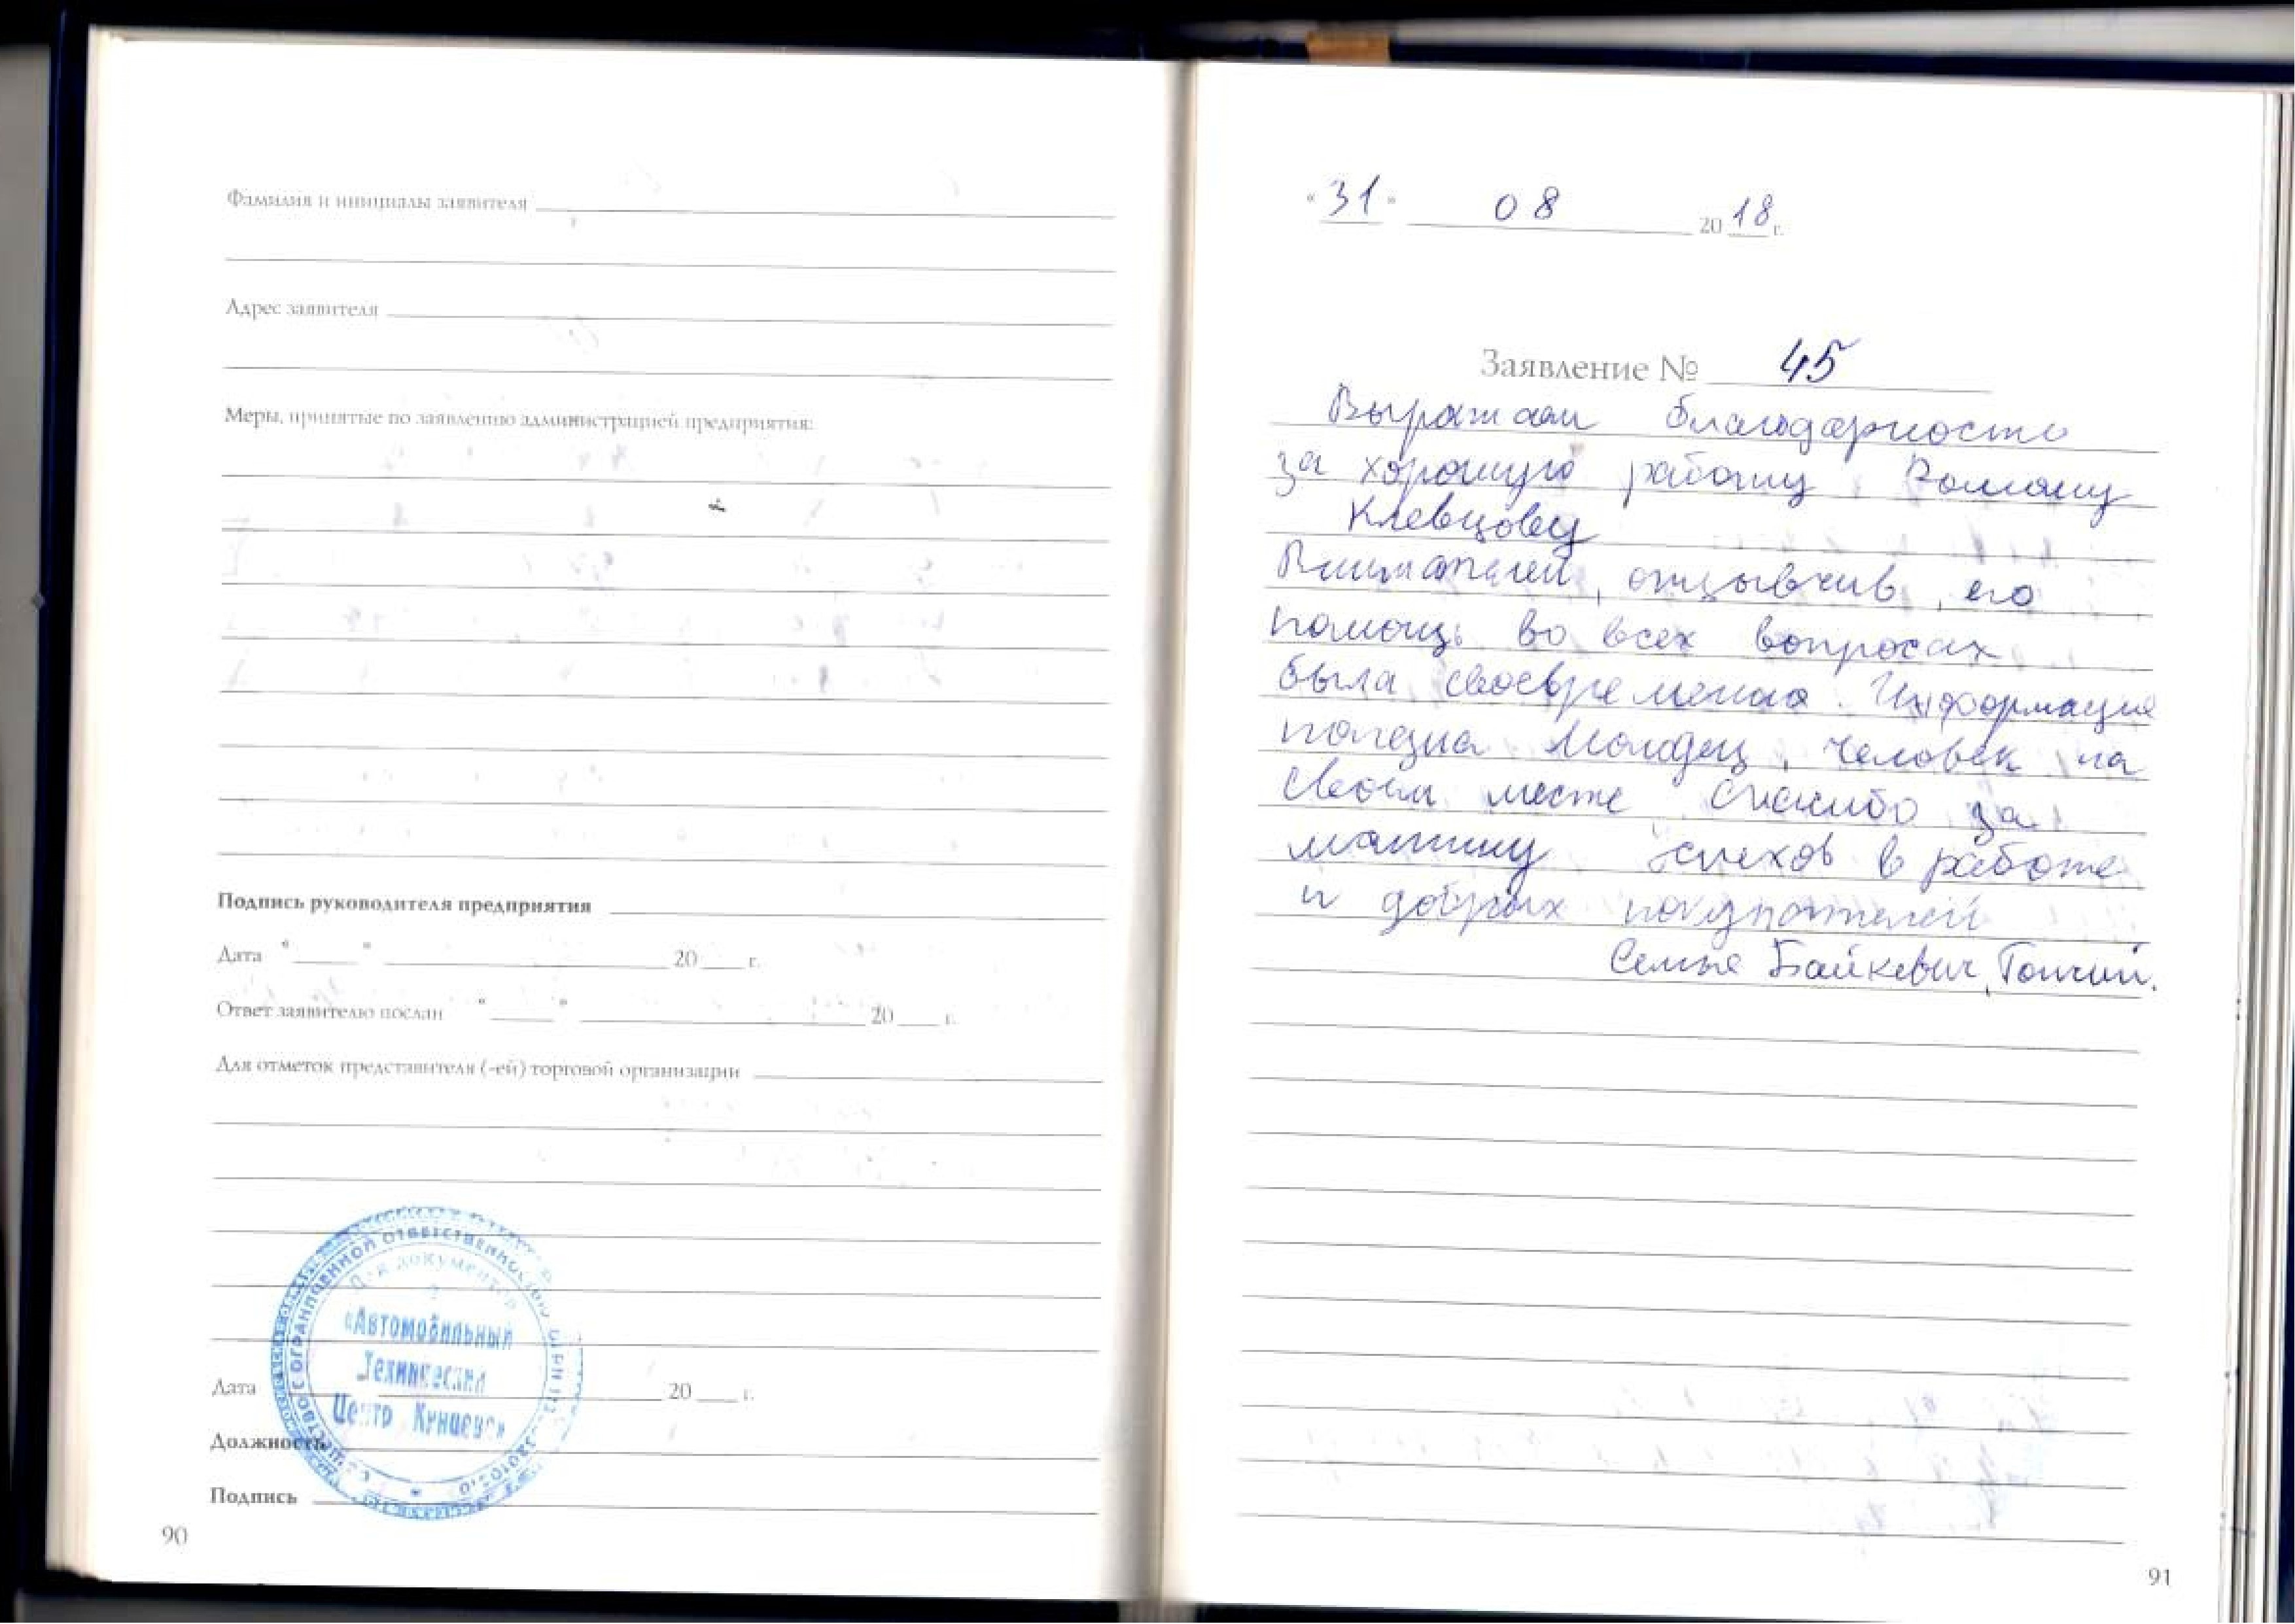 Фамилия и инициалы заявителя
Адрес заявителя
Меры, принятые по заявлению администрацией предприятия:
Подпись руководителя предприятия
Дата " " 20 г.
Ответ заявителю послан " " 20 г.
Для отметок представителя (-ей) торговой организации
С ОГРАНИЧЕННОЙ ОТВЕТСТВЕННОСТЬЮ
документов
«Автомобильный
Технический
Центр Кунцево»
Дата 20 г.
Должность
Подпись
90
«31» 08 2018 г.
Заявление № 45
Выражаем благодарность
за хорошую работу Роману
Клевцову
Внимателен, отзывчив, его
помощь во всех вопросах
была своевременна. Информация
полезна. Молодец, человек на
своем месте Спасибо за
машину успехов в работе
и добрых покупателей
Семья Байкевич,
91